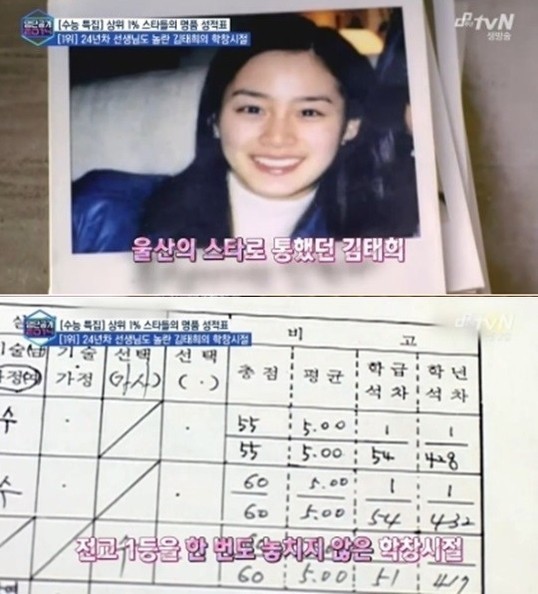 명단공개
2014
[수능 특집] 상위 1% 스타들의 명품 성적표
[1위] 24년차 선생님도 놀란 김태희의 학창시절
tvN
생방송
울산의 스타로 통했던 김태희
명단공개
2014
[수능 특집] 상위 1% 스타들의 명품 성적표
[1위] 24년차 선생님도 놀란 김태희의 학창시절
tvN
비 고
기술 선택 선택 총점 평균 학급 학년
가정 (가사) ( . ) 석차 석차
수 55 5.00 1 1
55 5.00 54 428
수 60 5.00 1 1
60 5.00 54 432
전교 1등을 한 번도 놓치지 않은 학창시절
60 5.00 51 417